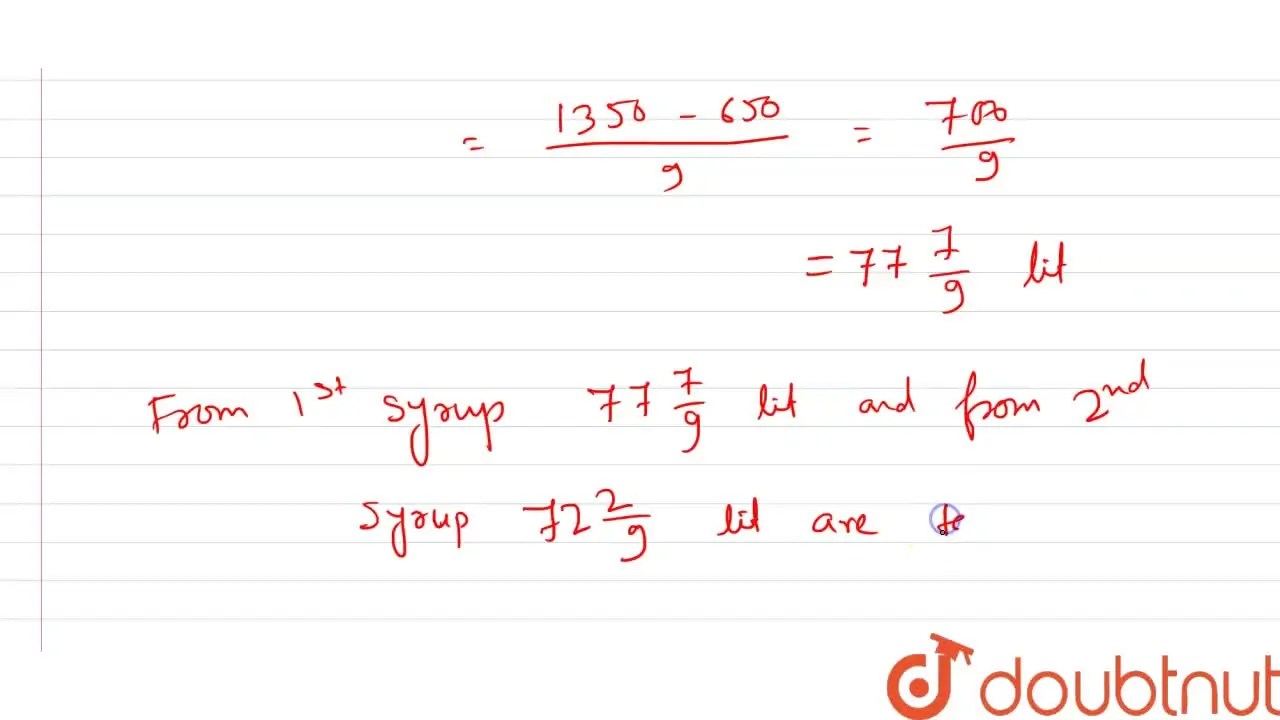 = 1350 - 650 / 9 = 700 / 9
= 77 7/9 lit
From 1st syrup 77 7/9 lit and from 2nd
syrup 72 2/9 lit are
doubtnut